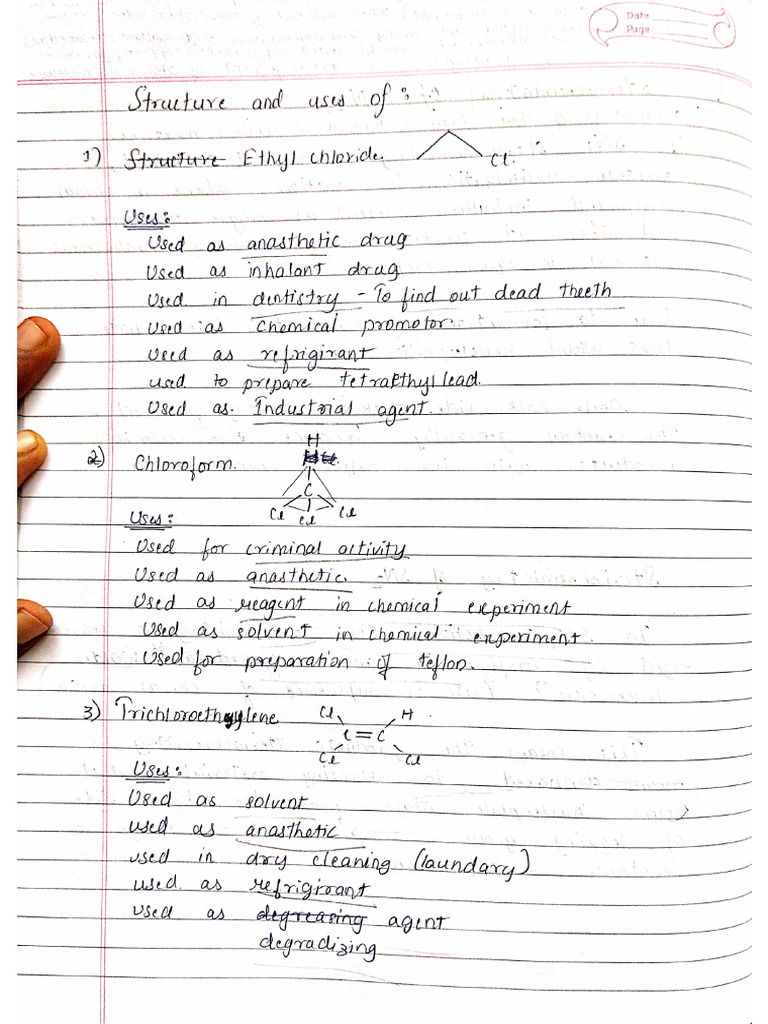 Date
Page
Structure and uses of :
1) Structure Ethyl chloride. Cl.
Uses:
Used as anasthetic drug
Used as inhalant drug
Used in dentistry - To find out dead theeth
Used as chemical promotor.
Used as refrigirant
used to prepare tetraEthyl lead.
Used as Industrial agent.
H
2) Chloroform.
C
Cl Cl Cl
Uses:
Used for criminal activity
Used as anasthetic.
Used as reagent in chemical experiment
Used as solvent in chemical experiment
Used for preparation of teflon.
3) Trichloroethylene Cl H
C=C
Cl Cl
Uses:
Used as solvent
used as anasthetic
used in dry cleaning (laundary)
used as refrigirant
used as degreasing agent
degradizing